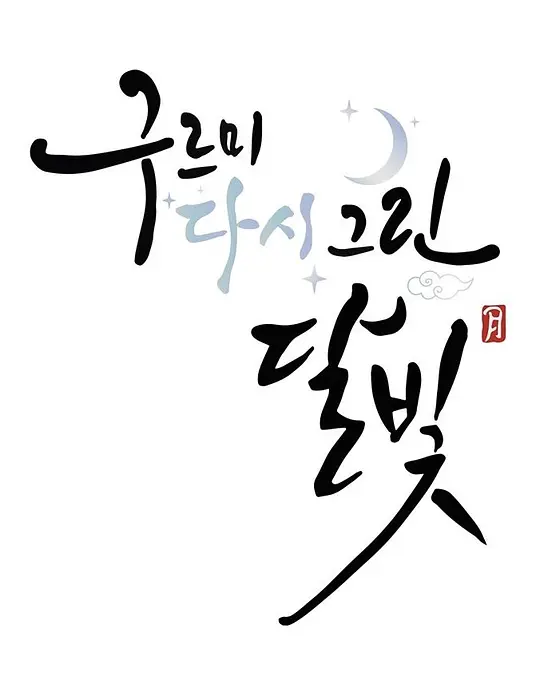 구르미
다시 그린
달빛
月